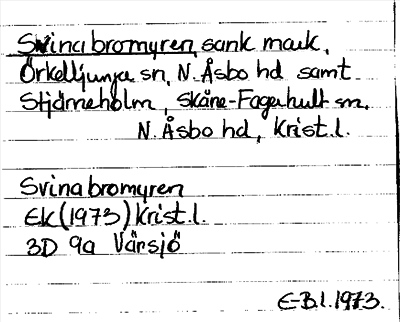 Svinabromyren, sank mark,
Örkelljunga sn, N. Åsbo hd samt
Stjärneholm, Skåne-Fagerhult sn,
N. Åsbo hd, Krist. l.
Svinabromyren
EK (1973) Krist. l.
3D 9a Värsjö
E-B. l. 1973.